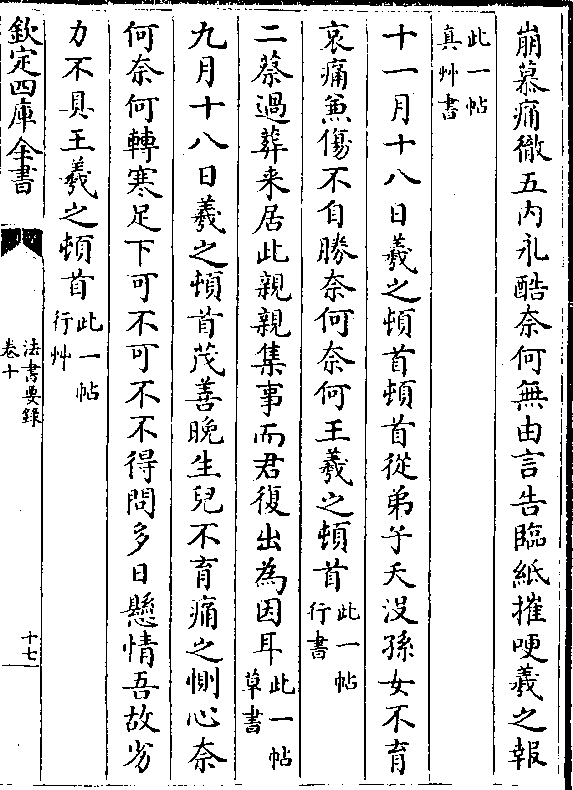 崩慕痛徹五內永酷奈何無由言告臨紙摧哽羲之報
此一帖
真艸書
十一月十八日羲之頓首頓首從弟子夭沒孫女不育
哀痛兼傷不自勝奈何奈何王羲之頓首此一帖
行書
二蔡過葬来居此親親集事而君復出為因耳此一帖
草書
九月十八日羲之頓首茂善晚生兒不育痛之惻心奈
何奈何轉寒足下可不可不不得問多日懸情吾故劣
力不具王羲之頓首此一帖
行艸
欽定四庫全書
法書要錄
卷十
十七